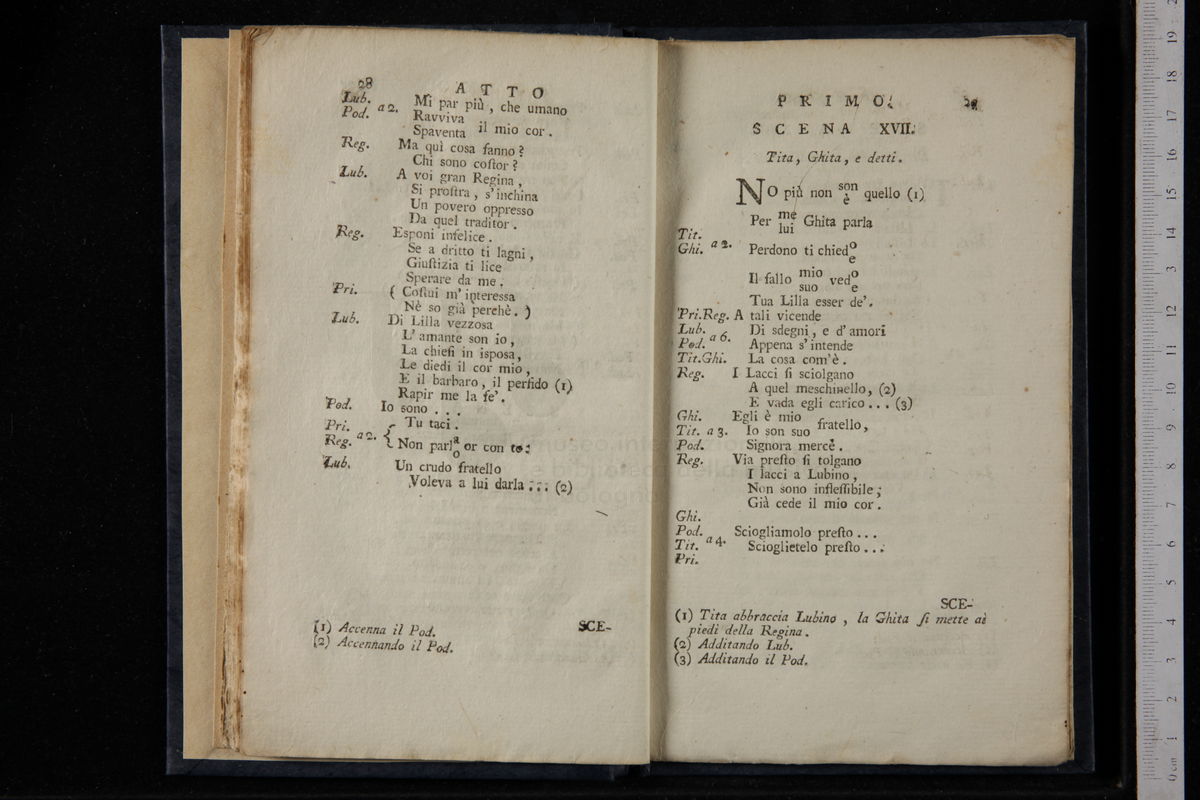 28
ATTO
Lub.
Pod. a 2. Mi par più, che umano
Ravviva
Spaventa il mio cor.
Reg. Ma quì cosa fanno?
Chi sono coſtor?
Lub. A voi gran Regina,
Si proſtra, s'inchina
Un povero oppresso
Da quel traditor.
Reg. Esponi infelice.
Se a dritto ti lagni,
Giuſtizia ti lice
Sperare da me.
Pri. ( Coſtui m'interessa
Nè so già perchè. )
Lub. Di Lilla vezzosa
L'amante son io,
La chieſi in isposa,
Le diedi il cor mio,
E il barbaro, il perfido (1)
Rapir me la fe'.
Pod. Io sono . . .
Pri. Tu taci.
Reg. a 2. { Non parl a o or con te:
Lub. Un crudo fratello
Voleva a lui darla . . . (2)
SCE-
(1) Accenna il Pod.
(2) Accennando il Pod.
PRIMO.
29
SCENA XVII.
Tita, Ghita, e detti.
NO più non son è quello (1)
Per me lui Ghita parla
Tit.
Ghi. a 2. Perdono ti chied o e
Il fallo mio suo ved o e
Tua Lilla esser de'.
Pri.Reg. A tali vicende
Lub. Di sdegni, e d'amori
Pod. a 6. Appena s'intende
Tit.Ghi. La cosa com'è.
Reg. I Lacci ſi sciolgano
A quel meschinello, (2)
E vada egli carico . . . (3)
Ghi. Egli è mio
Tit. a 3. Io son suo fratello,
Pod. Signora mercè.
Reg. Via preſto ſi tolgano
I lacci a Lubino,
Non sono infleſſibile;
Già cede il mio cor.
Ghi.
Pod. Sciogliamolo preſto . . .
Tit. a 4. Scioglietelo preſto . . .
Pri.
SCE-
(1) Tita abbraccia Lubino, la Ghita ſi mette ai
piedi della Regina.
(2) Additando Lub.
(3) Additando il Pod.